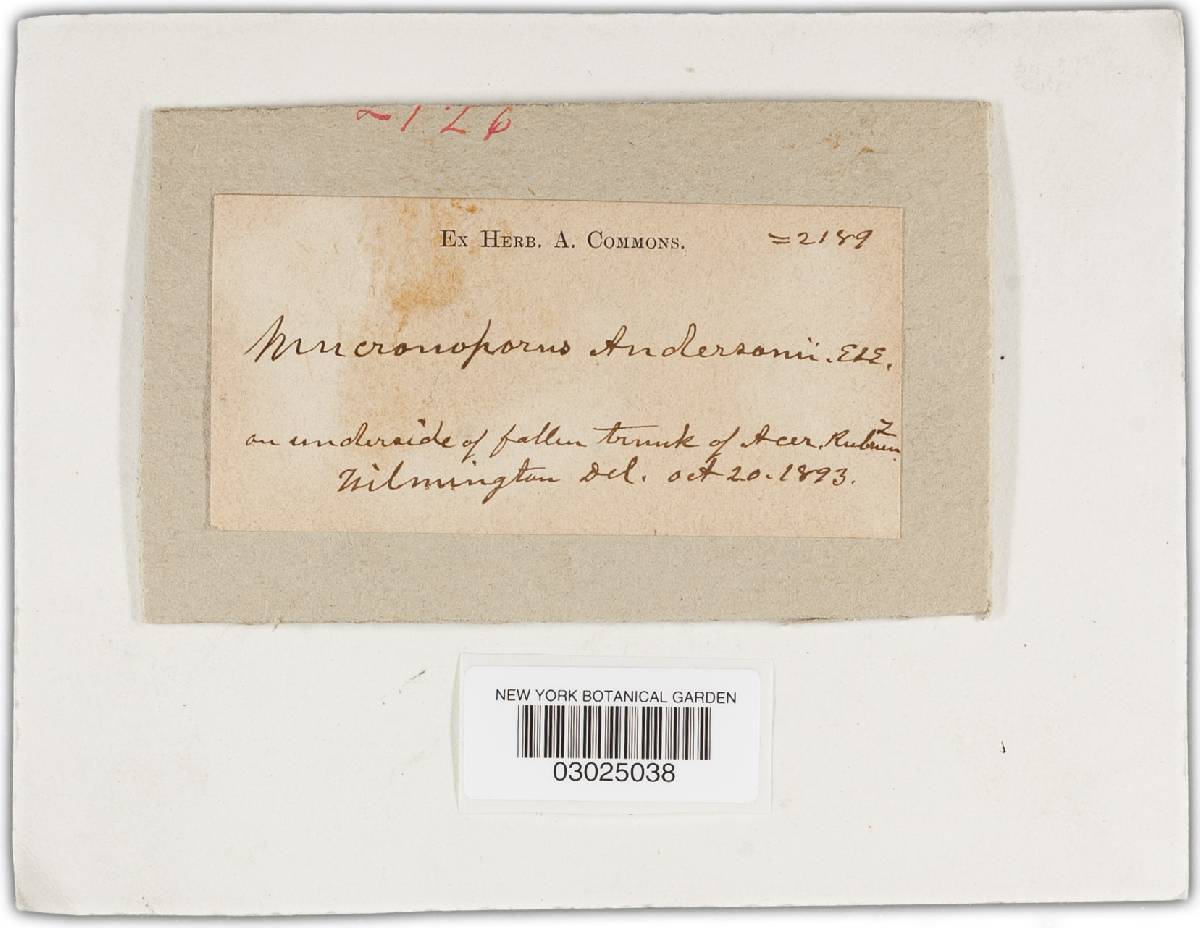 ~126
Ex Herb. A. Commons. =2189
Mucronoporus Andersonii. E&E.
on underside of fallen trunk of Acer Rubrum.
Wilmington Del. oct 20. 1893.
NEW YORK BOTANICAL GARDEN
03025038